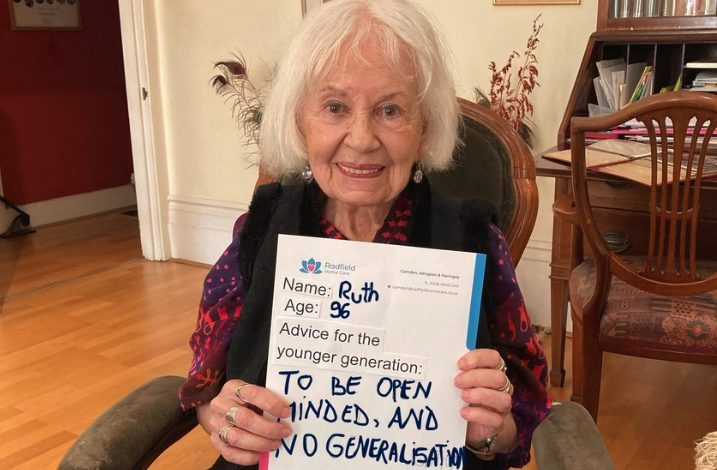 Radfield
Home Care
Camden, Islington & Haringey
Name: Ruth
Age: 96
Advice for the
younger generation:
TO BE OPEN
MINDED, AND
NO GENERALISATION